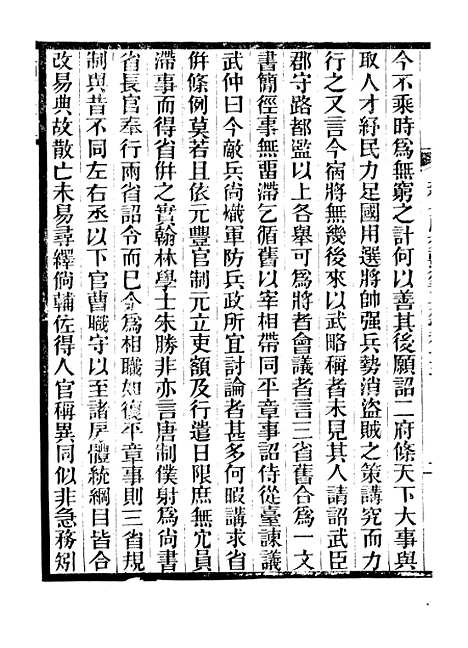 今不乘時爲無窮之計何以善其後願詔二府條天下大事與
取人才紓民力足國用選將帥强兵勢消盜賊之策講究而力
行之又言今宿將無幾後來以武略稱者未見其人請詔武臣
郡守路都監以上各舉可爲將者會議者言三省舊合爲一文
書簡徑事無畱滯乞循舊以宰相帶同平章事詔侍從臺諫議
武仲曰今敵兵尚熾軍防兵政所宜討論者甚多何暇講求省
併條例莫若且依元豐官制元立吏額及行遣日限庶無宂員
滯事而得省併之實翰林學士朱勝非亦言唐制僕射爲尚書
省長官奉行兩省詔令而已今爲相職如復平章事則三省規
制與昔不同左右丞以下官曹職守以至諸房體統綱目皆合
改易典故散亡未易尋繹倘輔佐得人官稱異同似非急務矧